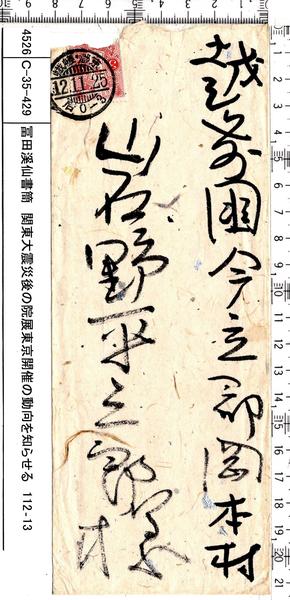 越前國今立郡岡本村
岩野平三郎様
12.11.25
4526 C-35-429 冨田溪仙書简 関東大震災後の院展東京開催の動向を知らせる 112-13